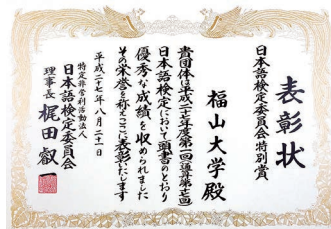 表彰状
日本語検定委員会特別賞
福山大学殿
貴団体は平成二七年度第一回通算第十七回
日本語検定において頭書のとおり
優秀な成績を収められました
その栄誉を称えここに表彰いたします
平成二十七年八月二十一日
特定非営利活動法人
日本語検定委員会
理事長 梶田叡一